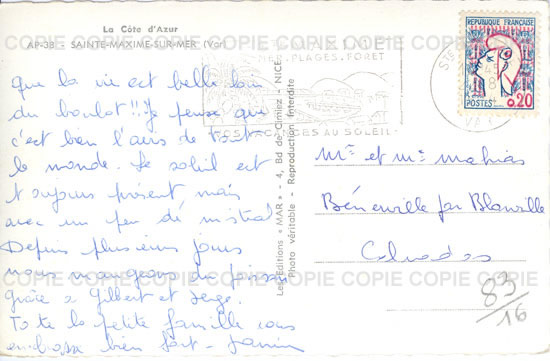 La Côte d'Azur
AP-38 - SAINTE-MAXIME-SUR-MER (Var)
COPIE COPIE COPIE COPIE COPIE COPIE COPIE
REPUBLIQUE FRANÇAISE
POSTES
0,20
STE MAXIME
PLAGES, FORET
VACANCES AU SOLEIL
VAR
que la vie est belle loin
du boulot!!! Je pense que
c'est bien l'avis de tout
le monde. Le soleil est
toujours présent mais
avec un peu de mistral
Depuis plusieurs jours
nous mangeons du poisson
grâce à Gilbert et Serge.
Toute la petite famille vous
embrasse bien fort -
Les Editions « MAR » - 4, Bd de Cimiez - NICE
Photo véritable - Reproduction interdite
Mr et Me Mahias
Bénerville par Blonville
Calvados
COPIE COPIE COPIE COPIE COPIE COPIE COPIE
83/16
COPIE COPIE COPIE COPIE COPIE COPIE COPIE